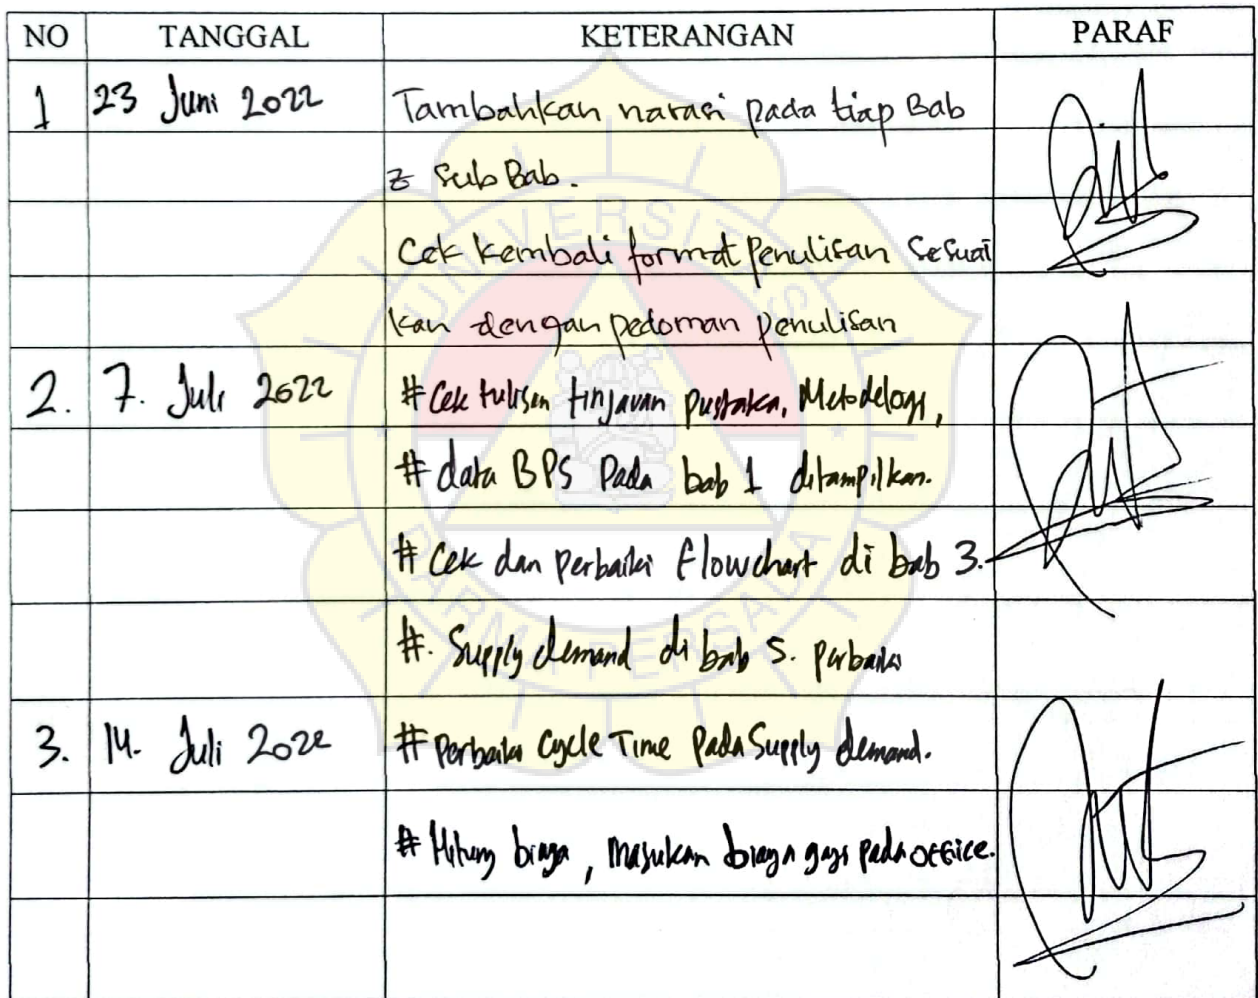 NO TANGGAL KETERANGAN PARAF
1 23 Juni 2022 Tambahkan narasi pada tiap Bab
& Sub Bab.
Cek kembali format penulisan Sesuai
kan dengan pedoman penulisan
2. 7. Juli 2022 # Cek tulisan tinjauan pustaka, Metodelogi,
# data BPS Pada bab 1 ditampilkan.
# Cek dan Perbaiki flowchart di bab 3.
#. Supply demand di bab 5. perbaiki
3. 14. Juli 2022 # Perbaiki Cycle Time Pada Supply demand.
# Hitung biaya, masukan biaya gaji pada office.
UNIVERSITAS
DARMA PERSADA